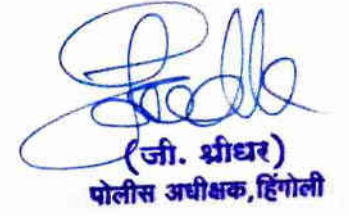 (जी. श्रीधर)
पोलीस अधीक्षक,हिंगोली